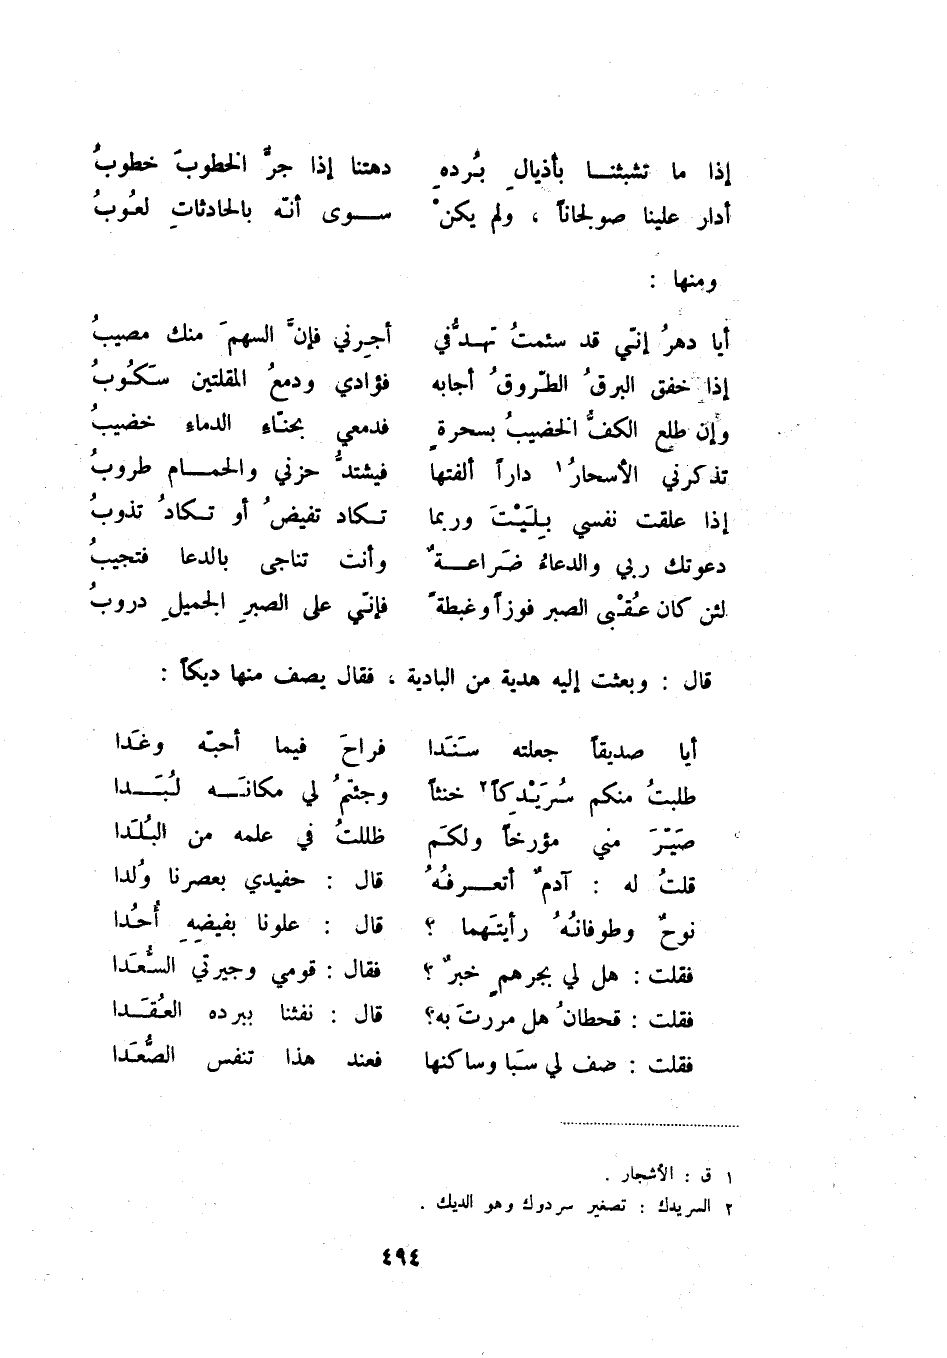 إذا ما تشبثنــا بأذيالِ بُردهِ دهتنا إذا جرَّ الخطوبَ خطوبُ
أدار علينا صولجاناً ، ولم يكنْ ســوى أنّه بالحادثاتِ لعُوبُ
ومنها :
أيا دهرُ إنّي قد سئمتُ تهدُّفي أجِرني فإنَّ السهمَ منك مصيبُ
إذا خفق البرقُ الطّروقُ أجابه فؤادي ودمعُ المقلتين سَكُوبُ
وإن طلع الكفُّ الخضيبُ بسحرةٍ فدمعي بحنّاءِ الدماءِ خضيبُ
تذكرني الأسحارُ١ داراً ألفتها فيشتدُّ حزني والحمــام طروبُ
إذا علقت نفسي بِلَيْتَ وربما تــكاد تفيضُ أو تــكادُ تذوبُ
دعوتك ربي والدعاءُ ضَراعــةٌ وأنت تناجى بالدعا فتجيبُ
لئن كان عُقْبى الصبر فوزاً وغبطةً فإنّي على الصبرِ الجميلِ دروبُ
قال : وبعثت إليه هدية من البادية ، فقال يصف منها ديكاً :
أيا صديقاً جعلته سَنَدا فراحَ فيما أحبّه وغَدا
طلبتُ منكم سُرَيْدِكاً٢ خنثاً وجئتمُ لي مكانَــه لُبَــدا
صَيّرَ مني مؤرخاً ولكَم ظللتُ في علمه من البُلَدا
قلتُ له : آدمٌ أتعــرفُهُ قال : حفيدي بعصرنا وُلدا
نوحٌ وطوفانُهُ رأيتَهما ؟ قال : علونا بفيضِهِ أُحُدا
فقلت : هل لي بجرهمٍ خبرٌ ؟ فقال : قومي وجيرتي السُّعَدا
فقلت : قحطانُ هل مررتَ به؟ قال : نفثنا ببرده العُقَــدا
فقلت : صف لي سَبا وساكنها فعند هذا تنفس الصُّعَدا
١ ق : الأشجار .
٢ السريدك : تصغير سردوك وهو الديك .
٤٩٤